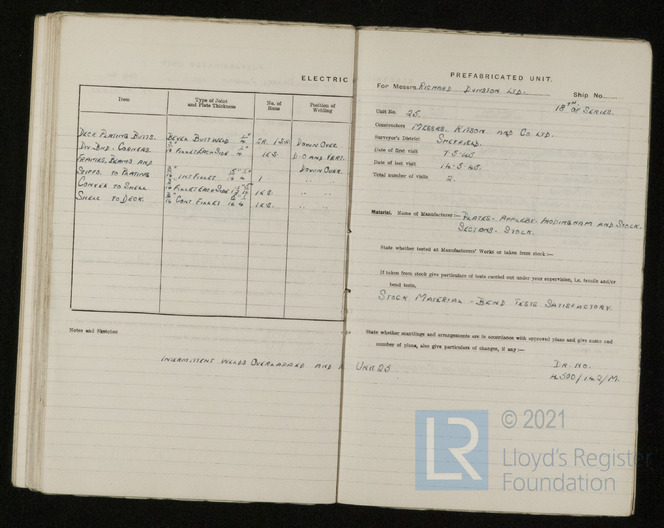 ELECTRIC
Item
Type of Joint and Plate Thickness
No. of Runs
Position of Welding
DECK PLATING BUTTS. BEVEL BUTT WELD 2R. 1 S.R. DOWN OVER
DIV. BHD. CORNERS. FILLET EACH SIDE 1 E.S. D-O AND VERT.
FRAMES, BEAMS AND
STIFFS. TO PLATING INT FILLET 1 DOWN OVER
TO SHELL FILLET EACH SIDE 1 E.S. " "
SHELL TO DECK. CONT. FILLET 1 E.S. " "
Notes and Sketches
INTERMITTENT WELDS OVERLAPPED AND
PREFABRICATED UNIT.
For Messrs. RICHARD DUNSTON LTD. Ship No.
18TH OF SERIES.
Unit No. 25.
Constructors MESSRS. AND CO LTD.
Surveyor's District SHEFFIELD.
Date of first visit 7-5-45.
Date of last visit 14-5-45.
Total number of visits 2.
Material. Name of Manufacturer :— PLATES - APPLEBY - FRODINGHAM AND STOCK.
SECTIONS - STOCK.
State whether tested at Manufacturers' Works or taken from stock :—
If taken from stock give particulars of tests carried out under your supervision, i.e. tensile and/or
bend tests,
STOCK MATERIAL - BEND TESTS SATISFACTORY.
State whether scantlings and arrangements are in accordance with approved plans and give name and
number of plans, also give particulars of changes, if any :—
UNIT 25 DR. NO.
4500/142/M.
© 2021
LR
Lloyd's Register
Foundation